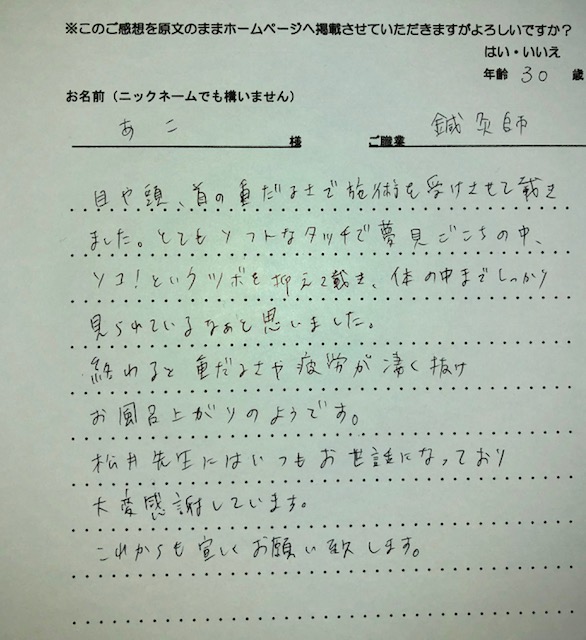 ※このご感想を原文のままホームページへ掲載させていただきますがよろしいですか？
はい・いいえ
年齢 30 歳
お名前（ニックネームでも構いません）
あこ 様 ご職業 鍼灸師
目や頭、首の重だるさで施術を受けさせて戴き
ました。とてもソフトなタッチで夢見ごこちの中、
ソコ！というツボを抑えて戴き、体の中までしっかり
見られているなぁと思いました。
終わると重だるさや疲労が凄く抜け
お風呂上がりのようです。
松井先生にはいつもお世話になっており
大変感謝しています。
これからも宜しくお願い致します。